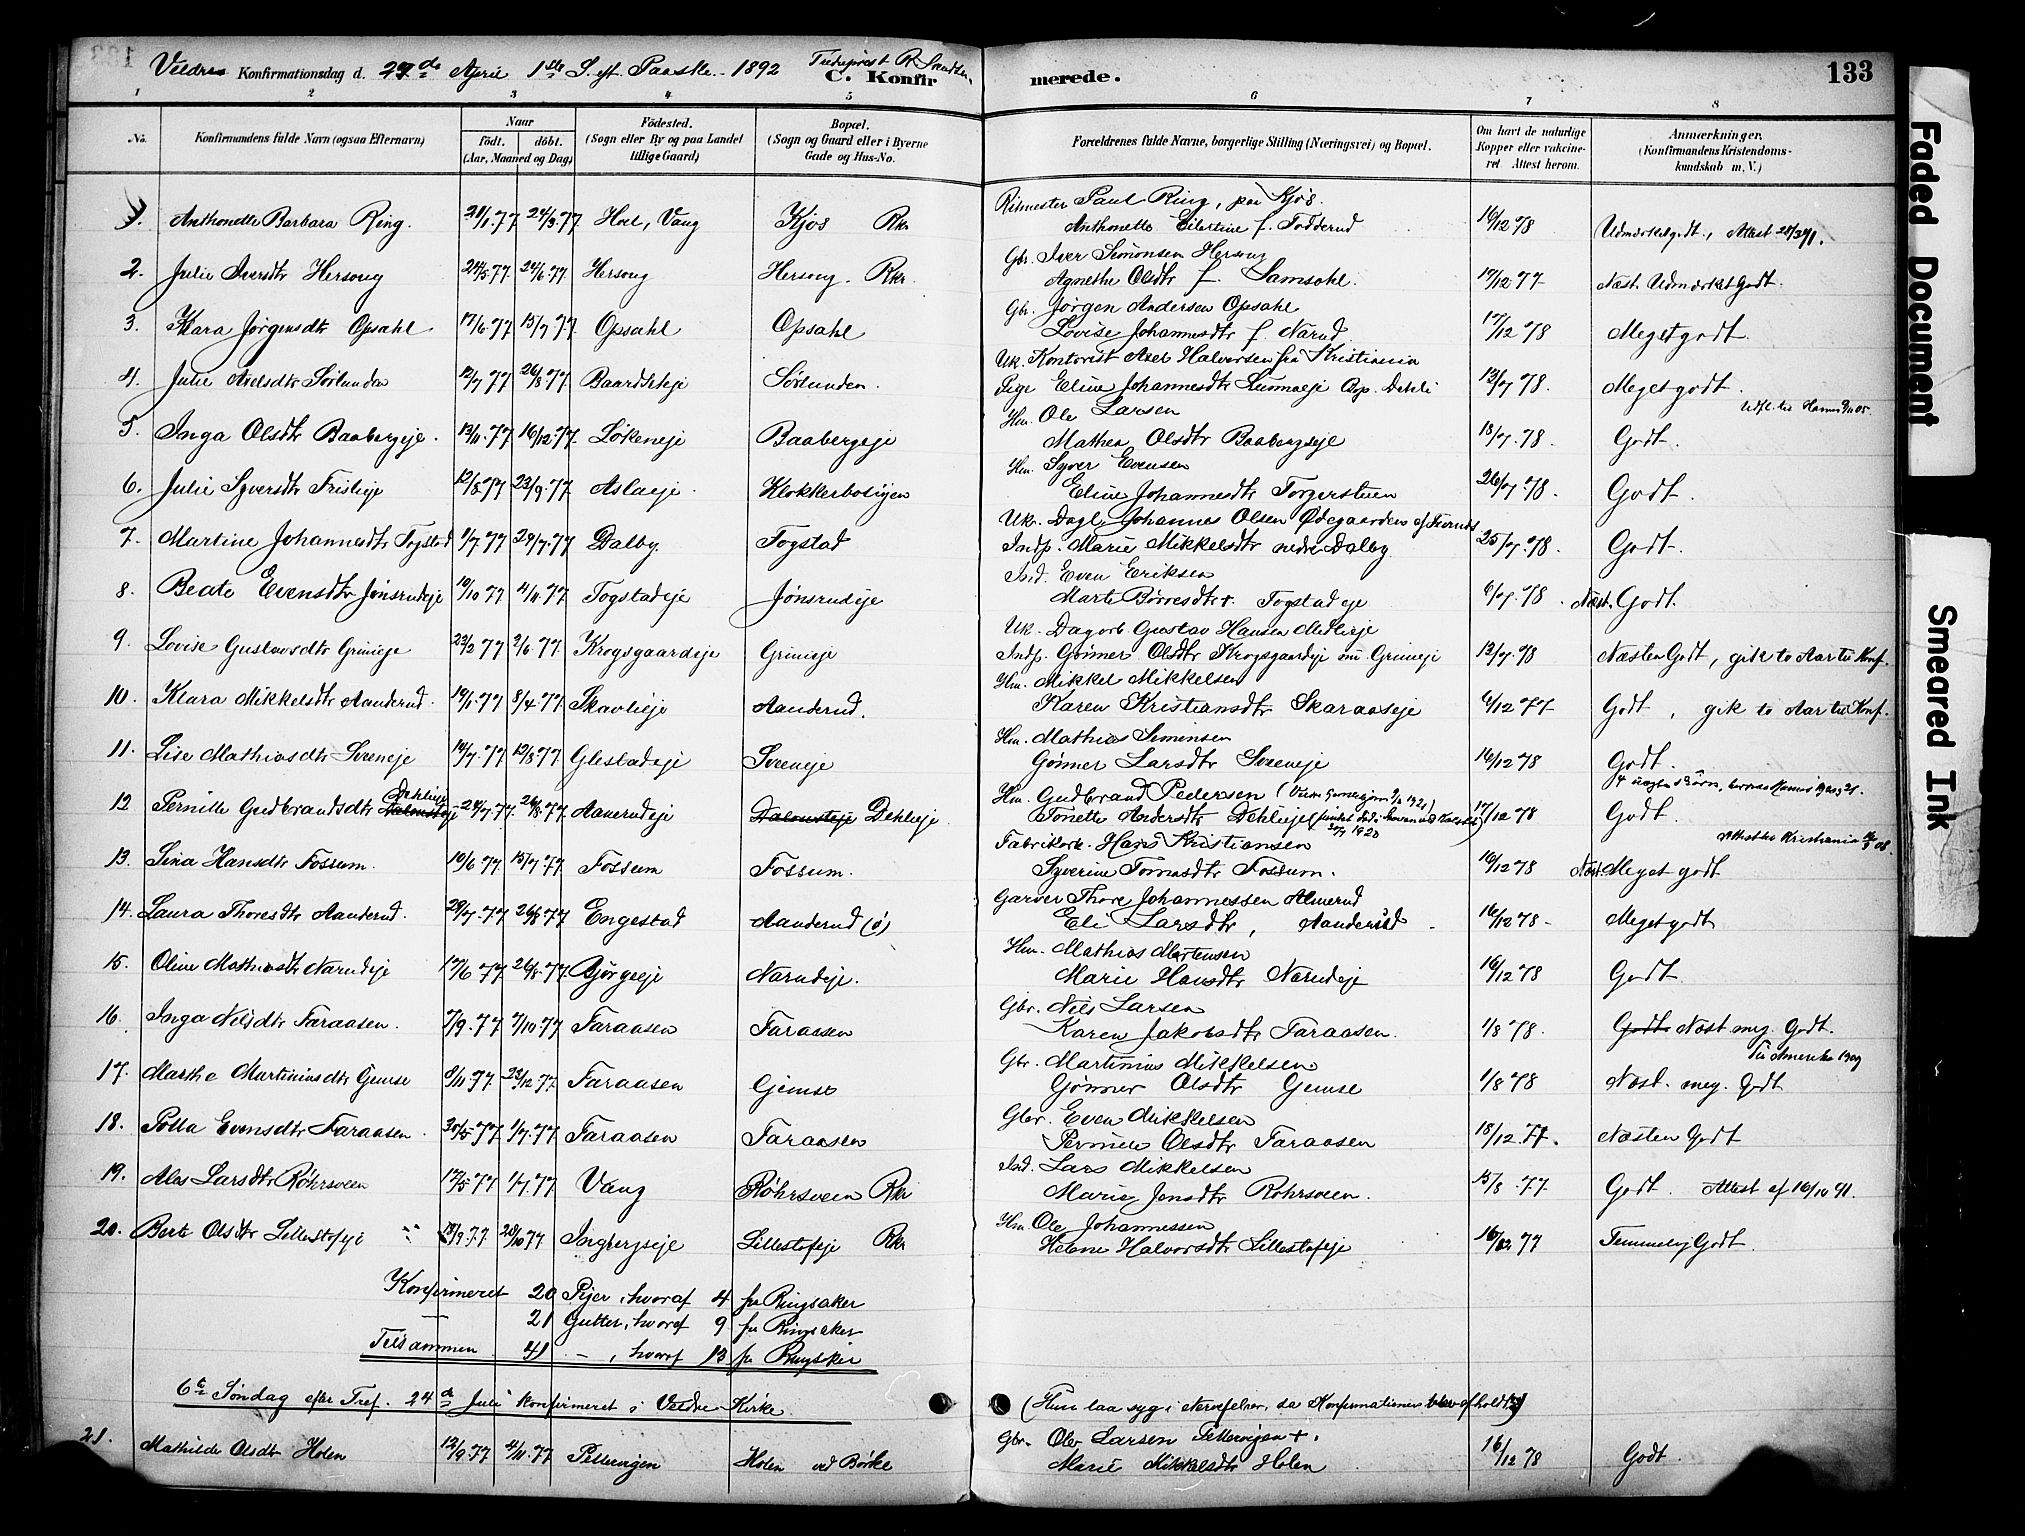 Veldre Konfirmationsdag d. 24de April 1ste S. eft. Paaske 1892
C. Konfirmerede.
133
1 2 3 4 5 6 7 8
No.
Konfirmandens fulde Navn (ogsaa Efternavn)
Naar
Födt. döbt.
(Aar, Maaned og Dag)
Födested.
(Sogn eller By og paa Landet tillige Gaard)
Bopæl.
(Sogn og Gaard eller i Byerne Gade og Hus-No.
Forældrenes fulde Navne, borgerlige Stilling (Næringsvei) og Bopæl.
Om havt de naturlige Kopper eller vakcineret Attest herom.
Anmærkninger.
(Konfirmandens Kristendomskundskab m. V.)
Ritmester Paul Ring, paa Kjøs.
1. Anthonette Barbara Ring. Hoel, Vang Kjøs Rkr Anthonette Eilertine f. Fodderud 16/12 78 Udmærketgodt,
Gbr. Iver Simonsen Hersoug
2. Julie Iversdtr Hersoug 24/5 77 24/6 77 Hersoug Hersoug. Rkr. Agnethe Olsdtr f. Samsahl. 17/12 77 Næst. Udmærket Godt.
Gbr. Jørgen Andersen Opsahl
3. Klara Jørgensdtr Opsahl 17/6 77 15/7 77 Opsahl Opsahl Lovise Johannesdtr f. Narud 17/12 78 Megetgodt.
Uk. Kontorist Axel Halvorsen fra Kristiania
4. Julie Axelsdtr Sørlunden 12/7 77 26/8 77 Sørlunden. Pige Eline Johannesdtr 13/7 78. Megetgodt.
Hm. Ole Larsen
5. Inga Olsdtr Baabergeje. 13/11 77 16/12 77 Løkeneje Baabergeje Mathea Olsdtr Baabergeje 18/7 78. Godt.
Hm. Syver Evensen
6. Julie Syversdtr Frislieje 12/8 77 23/9 77 Aslaeje. Klokkerbosigen Eline Johannesdtr Torgerstuen 26/7 78. Godt.
Uk. Dagl. Johannes Olsen Ødegaarden af Furnes
7. Martine Johannesdtr Togstad 1/7 77 29/7 77 Dalby. Togstad Indf. Marie Mikkelsdtr nedre Dalby 25/7 78. Godt.
Ind. Even Eriksen
8. Beate Evensdtr Jønsrudeje 10/10 77 4/11 77 Togstadeje Jønsrudeje Marte Børresdtr. Togstadeje 6/7 78. Næst. Godt.
Uk. Dagarb. Gustav Hansen
9. Lovise Gustavsdtr Grimeje 23/2 77 3/6 77 Krogsgaardeje Grimeje Indf. Gønner Olsdtr Krogsgaardeje nu Grimeje 13/7 78 Næsten Godt, gik to Aar til Konf.
Hm. Mikkel Mikkelsen
10. Klara Mikkelsdtr Aanderud. 14/1 77 8/4 77 Skavlieje Aanderud. Karen Kristiansdtr Skaraaseje 6/12 77 Godt, gik to Aar til Konf.
Hm. Mathias Simensen
11. Lise Mathiasdtr Sveneje 14/7 77 12/8 77 Glestadeje Sveneje Gønner Larsdtr Sveneje 16/12 78 Godt.
Hm. Gudbrand Pedersen
12 Pernille Gudbrandsdtr Dehlieje 24/7 77 26/8 77 Aanerudeje Dehlieje Tonette Andersdtr Dehlieje 17/12 78 Godt.
Fabrikark. Hans Kristiansen
13. Lina Hansdtr Fossum. 10/6 77 15/7 77 Fossum Fossum. Syverine Tomasdtr Fossum. 16/12 78 Næst. Meget godt
Attest ti Kristiania
Garver Thore Johannessen Almerud
14. Laura Thoresdtr Aanderud. 29/7 77 26/8 77 Engestad Aanderud (ø) Eli Larsdtr, Aanderud 16/12 78. Megetgodt
Hm. Mathias Martensen
15. Oline Mathiasdtr Narudeje 17/6 77 26/8 77 Bjørgeeje Narudeje. Marie Hansdtr Narudeje 16/12 78 Godt.
Gbr. Nils Larsen
16. Inga Nilsdtr Faraasen. 7/9 77 7/10 77 Faraasen Faraasen Karen Jakobsdtr Faraasen. 1/8 78. Godt Næst meg. Godt.
Til Amerika 1909
Gbr. Martinius Mikkelsen
17. Marthe Martiniusdtr Gjemse 8/11 77 23/12 77. Faraasen Gjemse Gønner Olsdtr Gjemse 1/8 78 Næst. meg. Godt
Gbr. Even Mikkelsen
18. Polla Evensdtr Faraasen. 30/5 77 1/7 77 Faraasen Faraasen Pernille Olsdtr Faraasen 18/12 77. Næsten Godt
Ind. Lars Mikkelsen
19. Ales Larsdtr Røhrsveen 17/5 77 1/7 77 Vang Røhrsveen Rkr Marie Jensdtr Rohrsveen. 15/8 77 Godt. Attest af 16/10 91.
Hm Ole Johannessen
20. Berte Olsdtr Lillestofeje 18/9 77 28/10 77 Ingbergseje Lillestofeje Rkr Helene Halvorsdtr Lillestofeje 16/12 77 Temmelig Godt.
Konfirmeret 20 Piger, hvoraf 4 fra Ringsaker
— 21 Gutter, hvoraf 9 fra Ringsaker
Tilsammen 41 —, hvoraf 13 fra Ringsaker
6te Søndag efter Tref. 24de Juli konfirmeret i Veldre Kirke.
(Hun laa syg i Nervefeber, da Konfirmationen blev afholdt)
Gbr. Ole Larsen
21. Mathilde Olsdtr Holen 12/9 77 4/11 77 Holen ved Børke Marie Mikkelsdtr Holen 16/12 78 Godt.
Faded Document
Smeared Ink